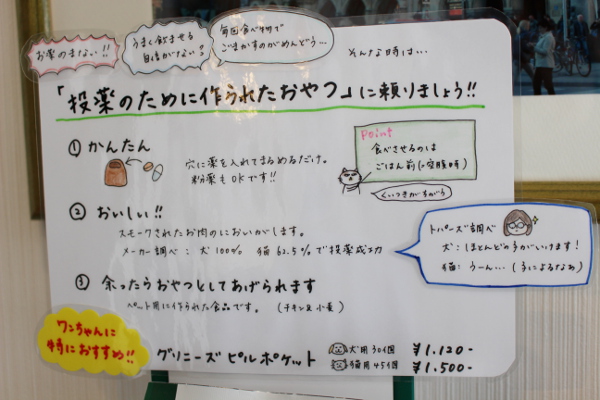 お薬のまない!!
うまく飲ませる
自信がない?
毎回食べ物で
ごまかすのがめんどう…
そんな時は…
「投薬のために作られたおやつ」に頼りましょう!!
① かんたん
穴に薬を入れてまるめるだけ。
粉薬もOKです!!
Point
食べさせるのは
ごはん前(=空腹時)
くいつきがちがう
② おいしい!!
スモークされたお肉のにおいがします。
メーカー調べ: 犬100% 猫62.5%で投薬成功
トパーズ調べ
犬:ほとんどの子がいけます!
猫:うーん…(子によるなぁ)
③ 余ったらおやつとしてあげられます
ペット用に作られた食品です。(チキン&小麦)
ワンちゃんに
特におすすめ!!
グリニーズピルポケット
犬用30個 ¥1.120-
猫用45個 ¥1.500-